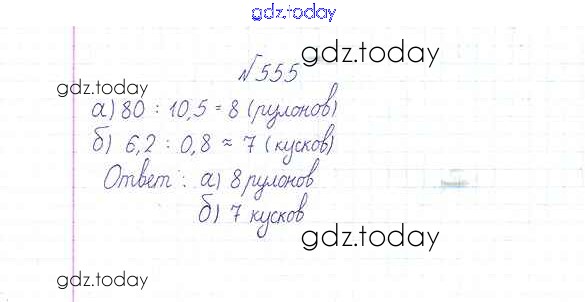 gdz.today
№555
gdz.today
gdz.today
а) 80 : 10,5 = 8 (рулонов)
б) 6,2 : 0,8 ≈ 7 (кусков)
Ответ: а) 8 рулонов
б) 7 кусков
gdz.today
gdz.today